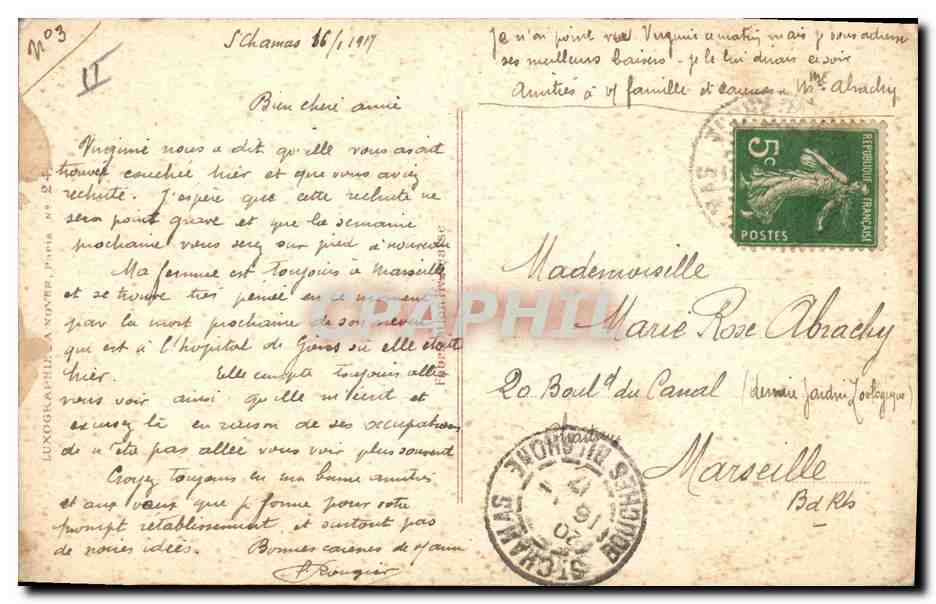 No 3
II
St Chamas 16/1 1917
Bien chère amie
Virginie nous a dit qu'elle vous avait
trouvée couchée hier et que vous aviez
rechuté. J'espère que cette rechute ne
sera point grave et que la semaine
prochaine vous serez sur pied à nouveau
Ma femme est toujours à Marseille
et se trouve très peinée en ce moment
par la mort prochaine de son neveu
qui est à l'hôpital de où elle était
hier. Elle compte toujours aller
vous voir ainsi qu'elle m'écrit et
excusez là en raison de ses occupations
de n'être pas allée vous voir plus souvent
Croyez toujours en ma bonne amitié
et aux vœux que je forme pour votre
prompt rétablissement et surtout pas
de noires idées. Bonnes caresses de
Rougier
Je n'ai point vu Virginie ce matin mais je vous adresse
ses meilleurs baisers - je le lui dirais ce soir
Amitiés à v/ famille et caresses à Mme Abrachy
LUXOGRAPHIE L. A NOYER, Paris No 24
Fabrication Française
CPAPHIL
REPUBLIQUE FRANÇAISE
5c
POSTES
Mademoiselle
Marie Rose Abrachy
20 Boul d du Canal (derrière Jardin Zoologique)
Marseille
B d Rh
ST CHAMAS
BOUCHES DU RHONE
20
16 1
17